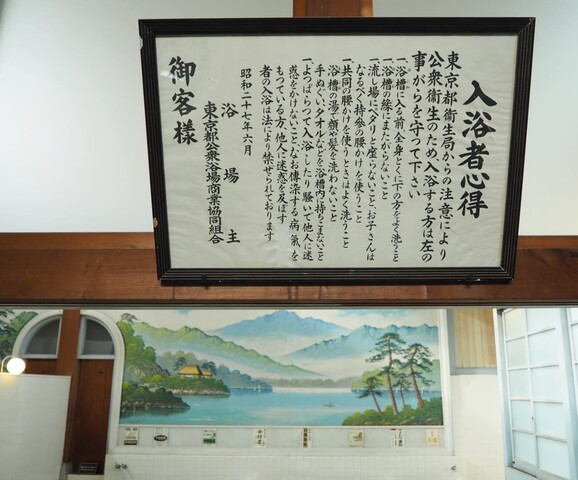 入浴者心得
東京都衛生局からの注意により
公衆衛生のため入浴する方は左の
事がらを守って下さい
一、浴槽に入る前、全身とくに下の方をよく洗うこと
一、浴槽の縁にまたがらないこと
一、流し場にペタリと座らないこと、お子さんは
なるべく持参の腰かけを使うこと
一、共同の腰かけを使うときはよく洗うこと
浴槽の湯で顔や髪を洗わないこと
手ぬぐいタオルなどを浴槽内に持ちこまないこと
一、よっぱらって入浴したり騒いで他人に迷
惑をかけないことなお傳染する病氣を
もっている方、他人に迷惑を及ぼす
者の入浴は法により禁ぜられております
昭和二十七年六月
浴場主
東京都公衆浴場商業協同組合
御客様